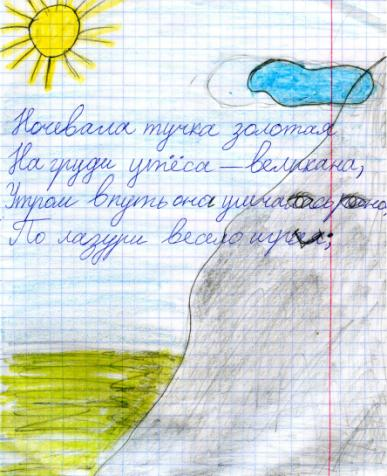 Ночевала тучка золотая
На груди утёса – великана,
Утром в путь она умчалась рано,
По лазури весело играя;